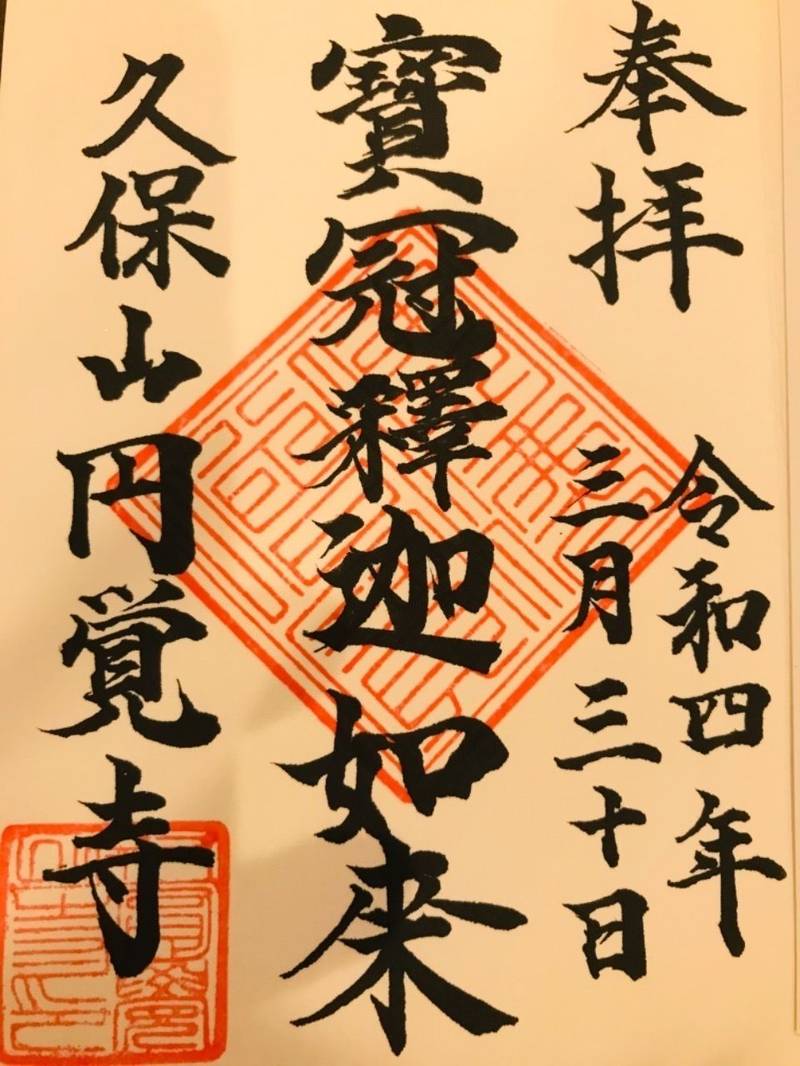 奉拝
令和四年
三月三十日
寶冠釋迦如来
久保山円覚寺